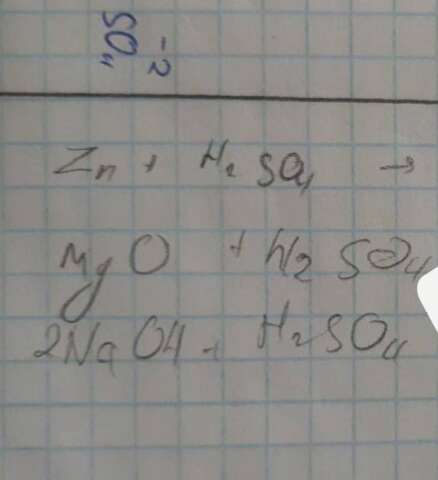 SO₄⁻²
Zn + H₂SO₄ →
MgO + H₂SO₄
2NaOH + H₂SO₄